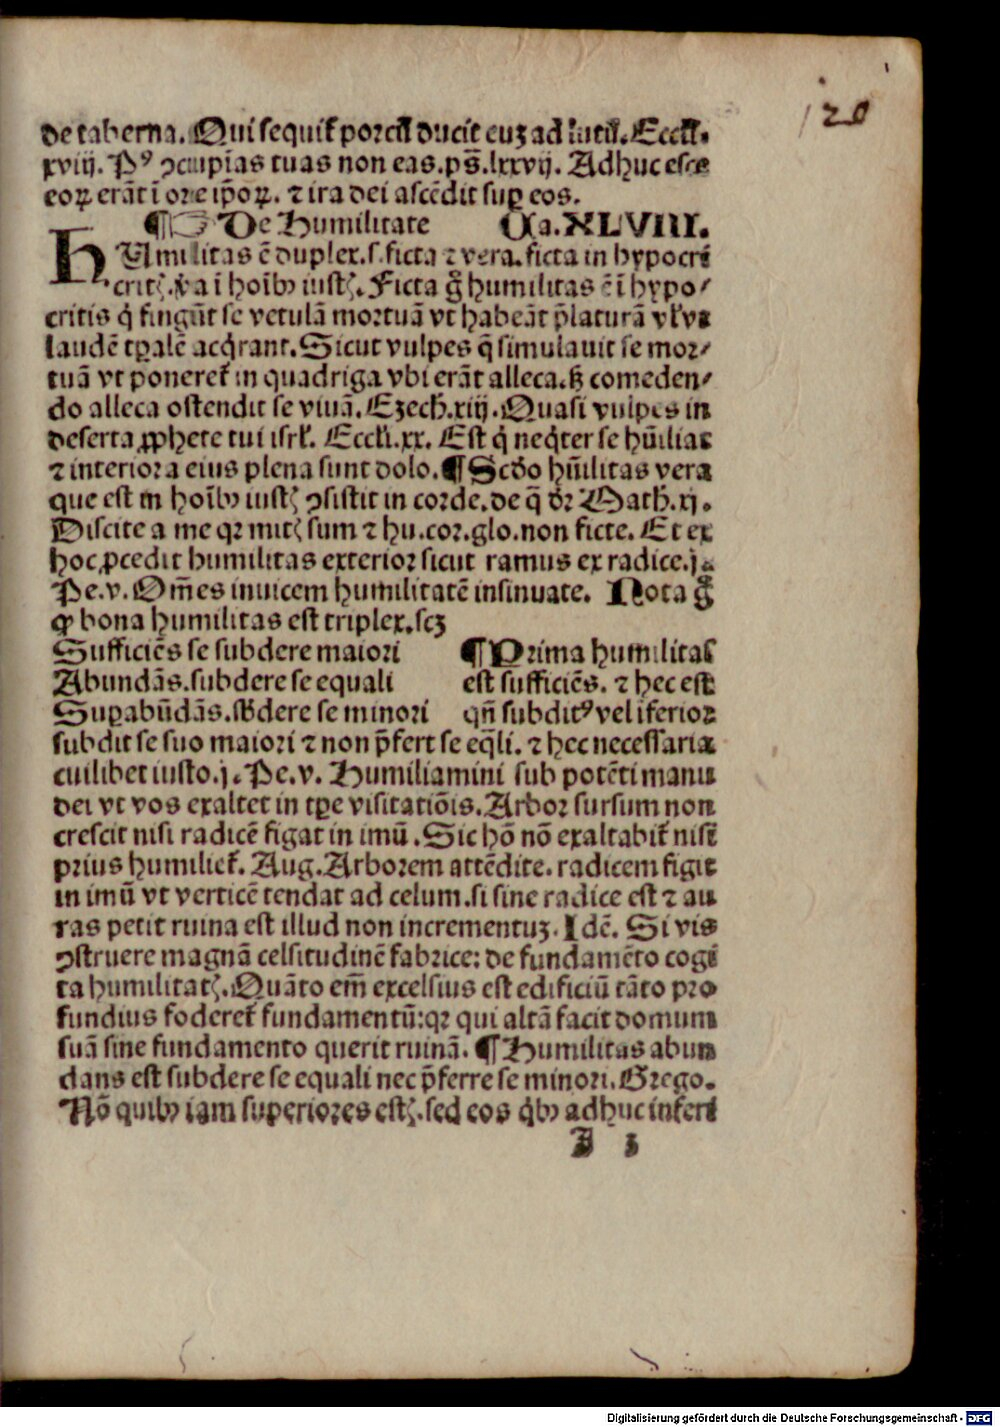 120
de taberna. Qui sequit᷑ porcũ ducit euꝫ ad lutũ. Eccľi.
xviij. Pꝰ ꝯcupĩas tuas non eas. ps̃. lxxvij. Adhuc esce
eoꝝ erãt ĩ ore ip̃oꝝ. ⁊ ira dei ascẽdit suꝑ eos.
¶ ☞ De Humilitate Ca. XLVIII.
HUmilitas ẽ duplex. s. ficta ⁊ vera. ficta in hypocri
critꝭ. v̾a ĩ hoĩbꝰ iustꝭ. Ficta g̊ humilitas ẽ ĩ hypo⸗
critis q̇ fingũt se vetulã mortuã vt habeãt p̃laturã vľ vt
laudẽ tꝑalẽ acq̇rant. Sicut vulpes q̃ simulauit se mor⸗
tuã vt poneret᷑ in quadriga vbi erãt alleca. sꝫ comeden⸗
do alleca ostendit se viuã. Ezech̃. xiij. Quasi vulpes in
deserta ꝓphete tui isrľ. Eccľi. xx. Est q̇ neq̇ter se hũiliat
⁊ interiora eius plena sunt dolo. ¶ Scd̃o hũilitas vera
que est in hoĩbꝰ iustꝭ ꝯsistit in corde. de q̃ dr̃ Math̃. xj.
Discite a me qꝛ mitꝭ sum ⁊ hu. cor. glo. non ficte. Et ex
hoc ꝓcedit humilitas exterior sicut ramus ex radice. j.
Pe. v. Om̃es inuicem humilitatẽ insinuate. Nota g̊
ꝙ bona humilitas est triplex. scꝫ
Sufficiẽs se subdere maiori
Abundãs. subdere se equali
Suꝑabũdãs. sb̃dere se minori
¶ Prima humilitas
est sufficiẽs. ⁊ hec est
qñ subditꝰ vel iferior
subdit se suo maiori ⁊ non p̃fert se eq̃li. ⁊ hec necessaria
cuilibet iusto. j. Pe. v. Humiliamini sub potẽti manu
dei vt vos exaltet in tꝑe visitatiõis. Arbor sursum non
crescit nisi radicẽ figat in imũ. Sic hõ nõ exaltabit᷑ nisi
prius humiliet᷑. Aug. Arborem attẽdite. radicem figit
in imũ vt verticẽ tendat ad celum. si sine radice est ⁊ au
ras petit ruina est illud non incrementuꝫ. Idẽ. Si vis
ꝯstruere magnã celsitudinẽ fabrice: de fundamẽto cogi
ta humilitatꝭ. Quãto em̃ excelsius est edificiũ tãto pro
fundius foderet᷑ fundamentũ: qꝛ qui altã facit domum
suã sine fundamento querit ruinã. ¶ Humilitas abun
dans est subdere se equali nec p̃ferre se minori. Grego.
Nõ quibꝰ iam superiores estꝭ. sed eos q̇bꝰ adhuc inferi
Digitalisierung gefördert durch die Deutsche Forschungsgemeinschaft - DFG